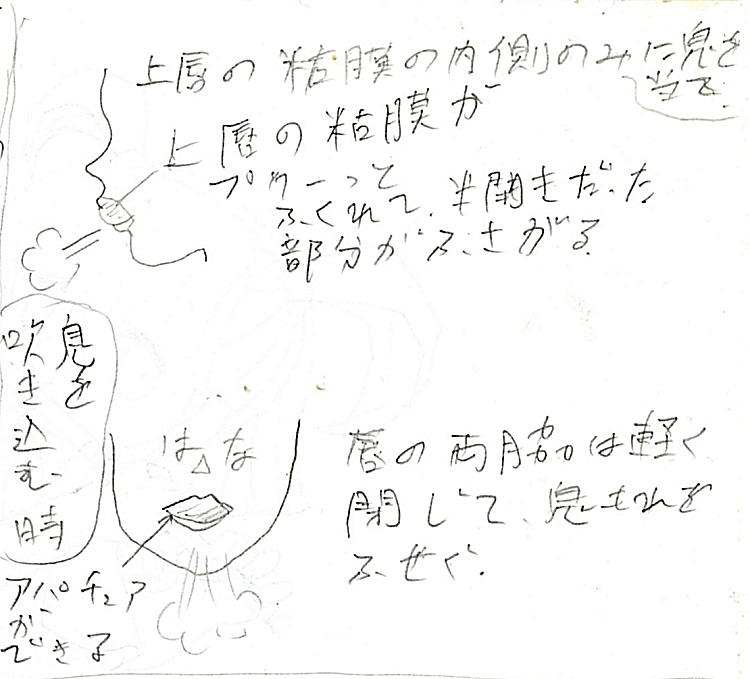 上唇の粘膜の内側のみに息を
当て
上唇の粘膜が
プゥーっと
ふくれて、半開きだった
部分がふさがる。
息を
吹き込む時
はな
唇の両脇は軽く
閉じて、息もれを
ふせぐ。
アパチュア
が
できる